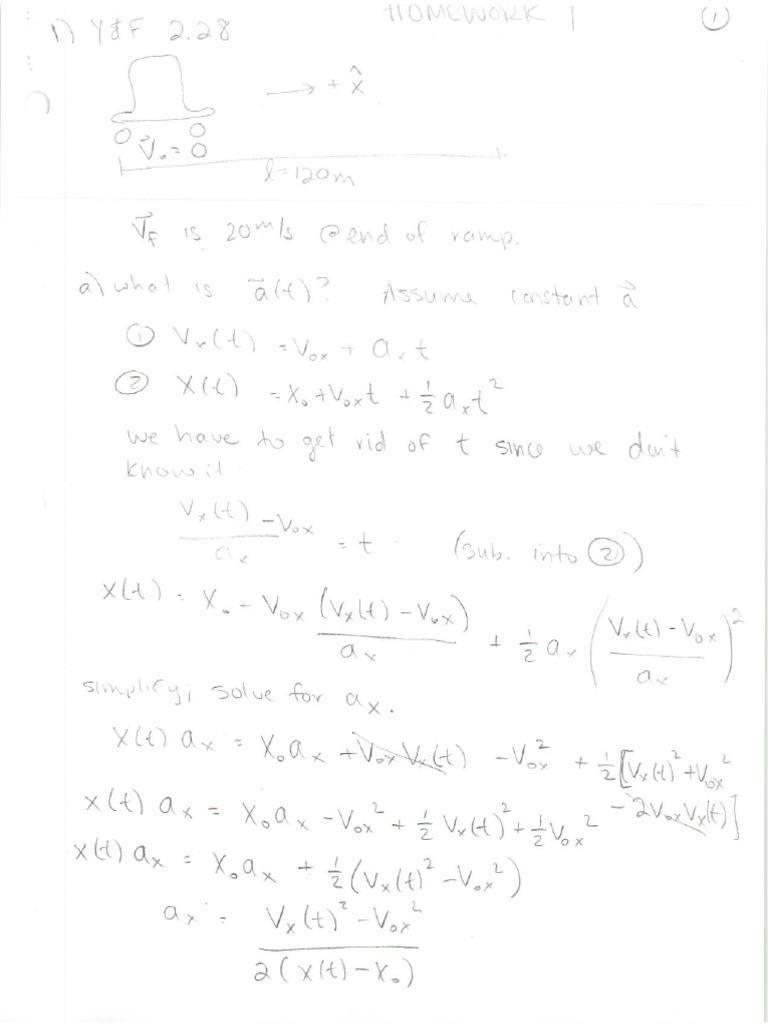 HOMEWORK 1
①
1) Y&F 2.28
→ + x̂
V⃗₀ = 0
l = 120m
V⃗f is 20 m/s @ end of ramp.
a) what is a⃗(t)? Assume constant a⃗
① Vx(t) = V₀x + axt
② X(t) = X₀ + V₀xt + ½ axt²
we have to get rid of t since we don't
know it
(Vx(t) - V₀x)/ax = t (sub. into ②)
X(t) = X₀ + V₀x (Vx(t) - V₀x)/ax + ½ ax ((Vx(t) - V₀x)/ax)²
simplify; solve for ax.
X(t) ax = X₀ax + V₀xVx(t) - V₀x² + ½[Vx(t)² + V₀x²
- 2V₀xVx(t)]
x(t) ax = X₀ax - V₀x² + ½ Vx(t)² + ½ V₀x²
x(t) ax = X₀ax + ½(Vx(t)² - V₀x²)
ax = (Vx(t)² - V₀x²)/(2(x(t) - X₀))